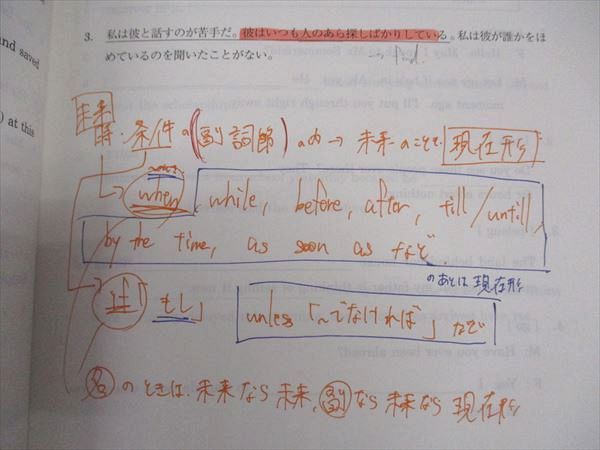 and saved
) at this
3. 私は彼と話すのが苦手だ。彼はいつも人のあら探しばかりしている。私は彼が誰かをほ
めているのを聞いたことがない。
→ find
未来
時・条件の(副詞節)の内→未来のことでも現在形
when, while, before, after, till/untill,
by the time, as soon as など
のあとは現在形
if「もし」 unless「〜でなければ」など
名のときは、未来なら未来、副なら未来なら現在形